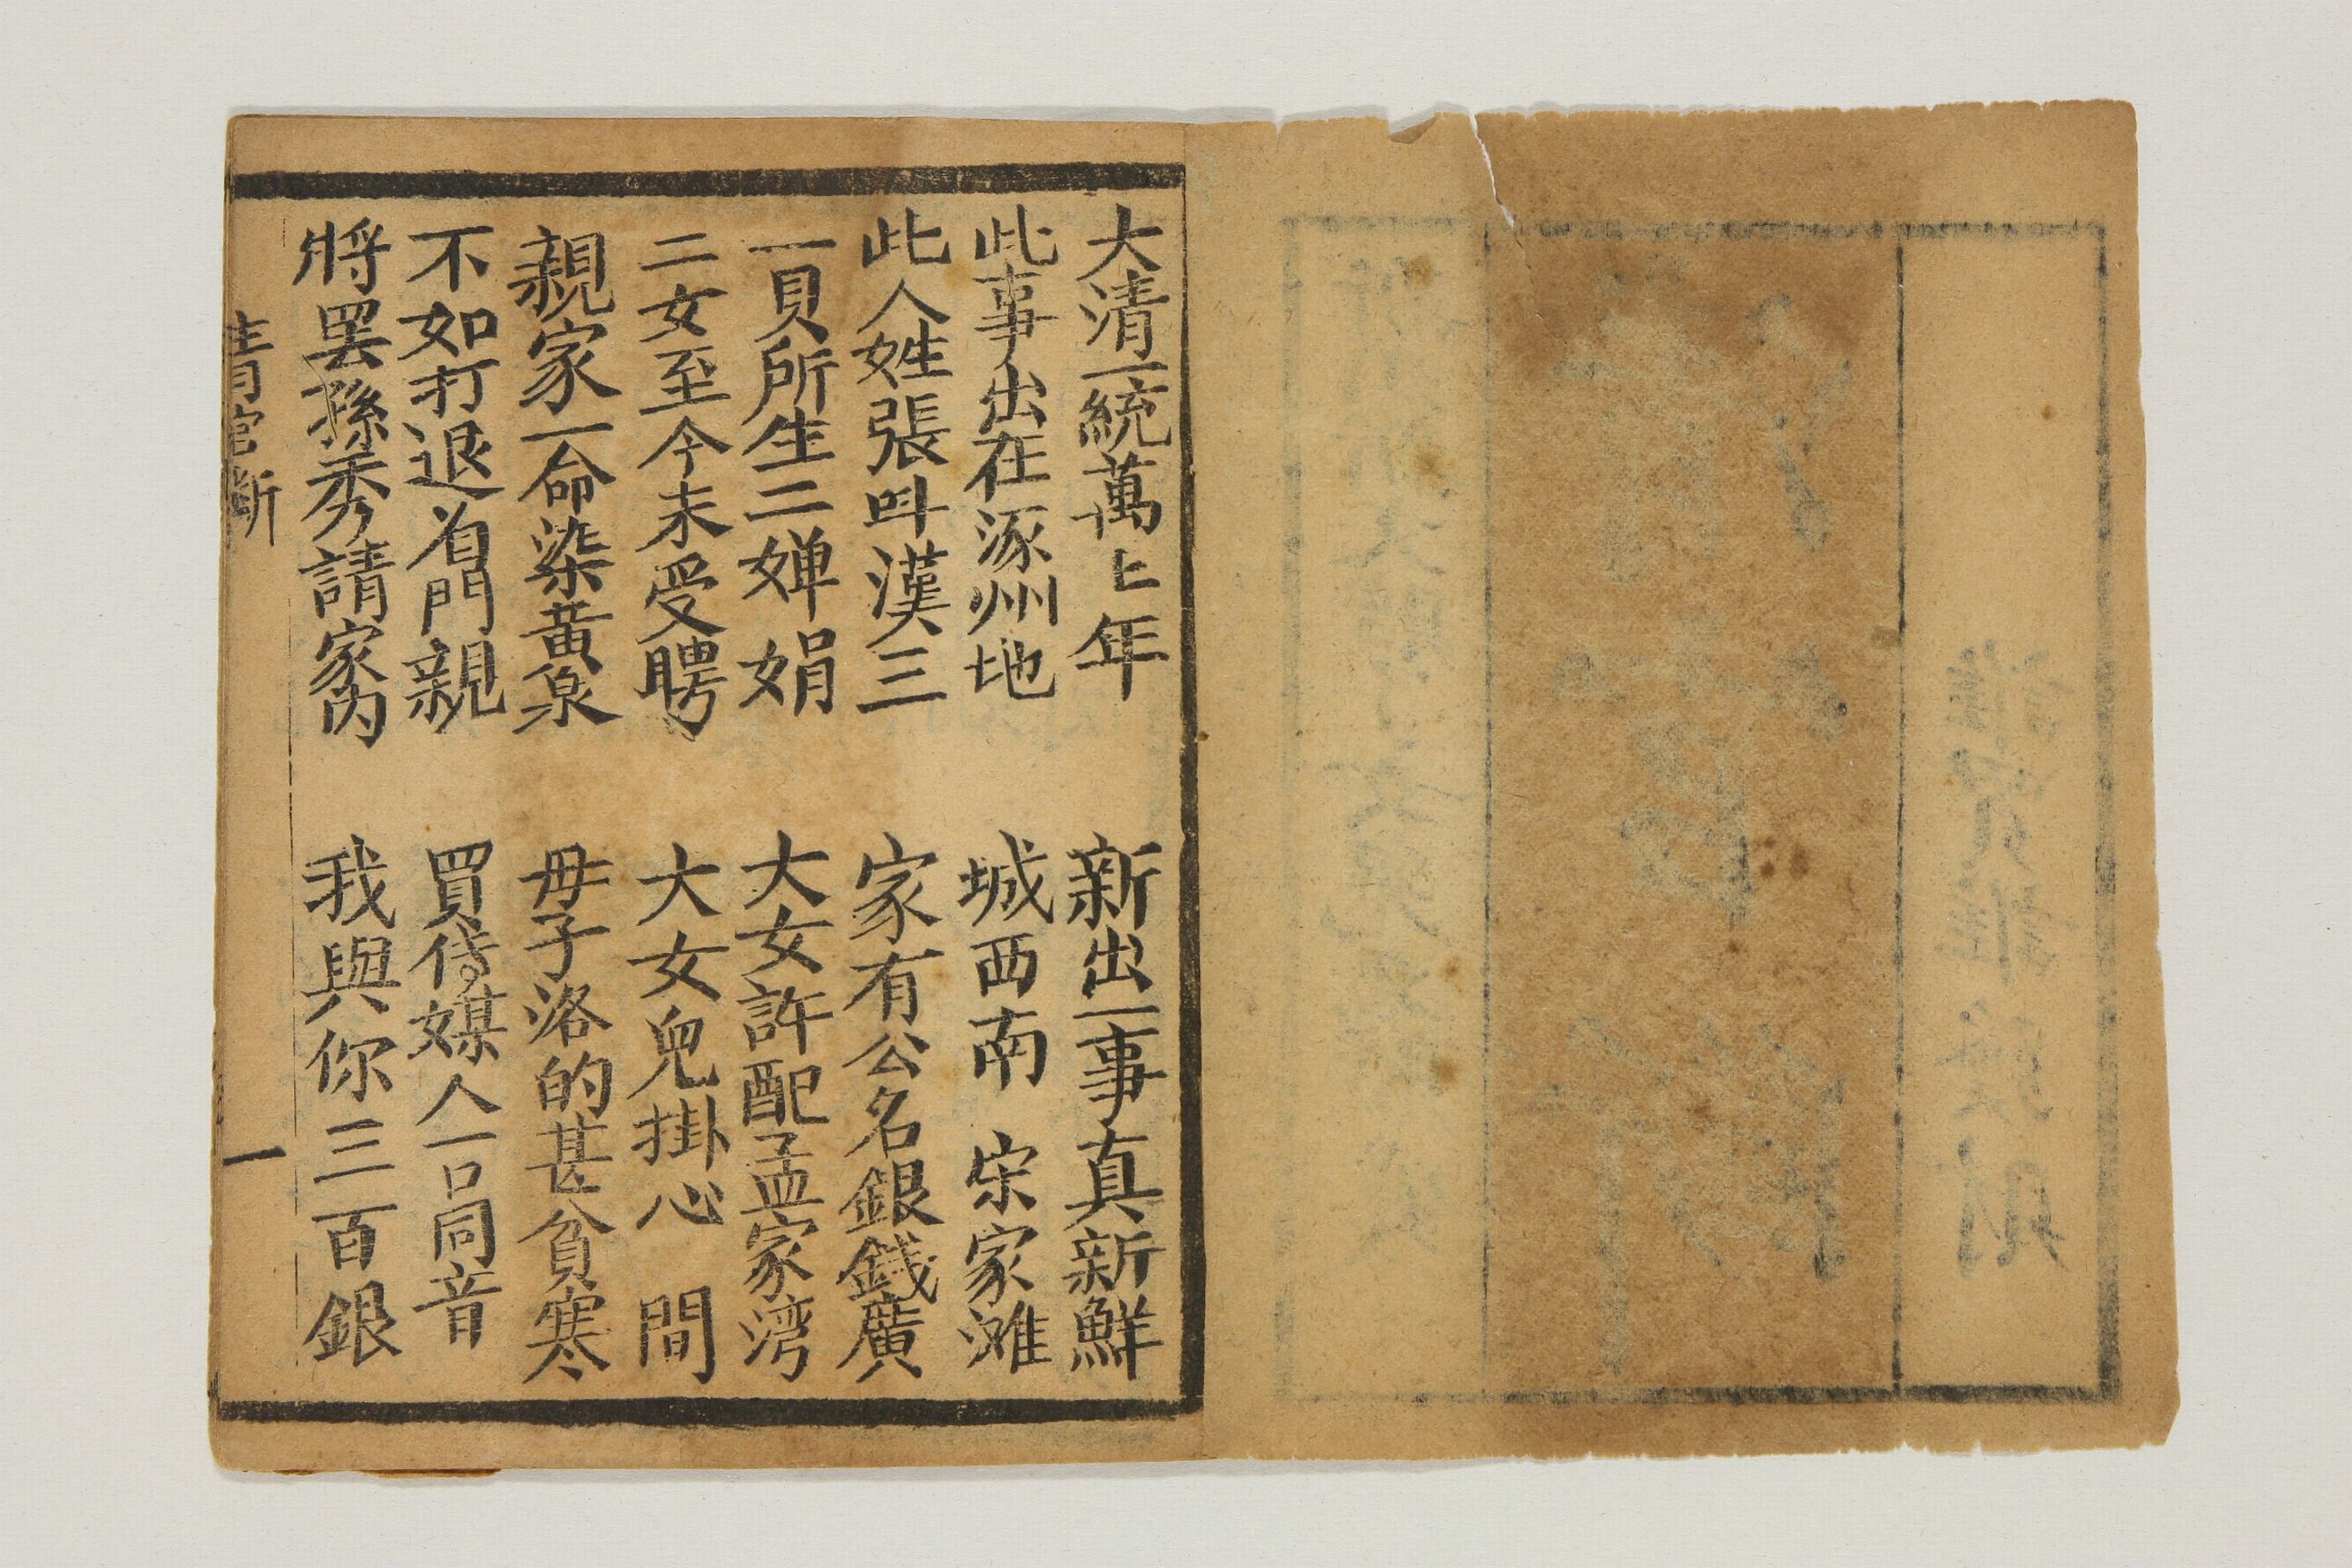 大清一統萬〻年 新出一事真新鮮
此事出在涿州地 城西南 宋家滩
此人姓張呌漢三 家有公名銀銭廣
一貝所生二婵娟 大女許配孟家湾
二女至今未受聘 大女兒掛心 間
親家一命染黄泉 母子洛的甚貧寒
不如打退有門親 買侍媒人一口同音
將罢孫秀請家内 我與你三百銀
清官断 一